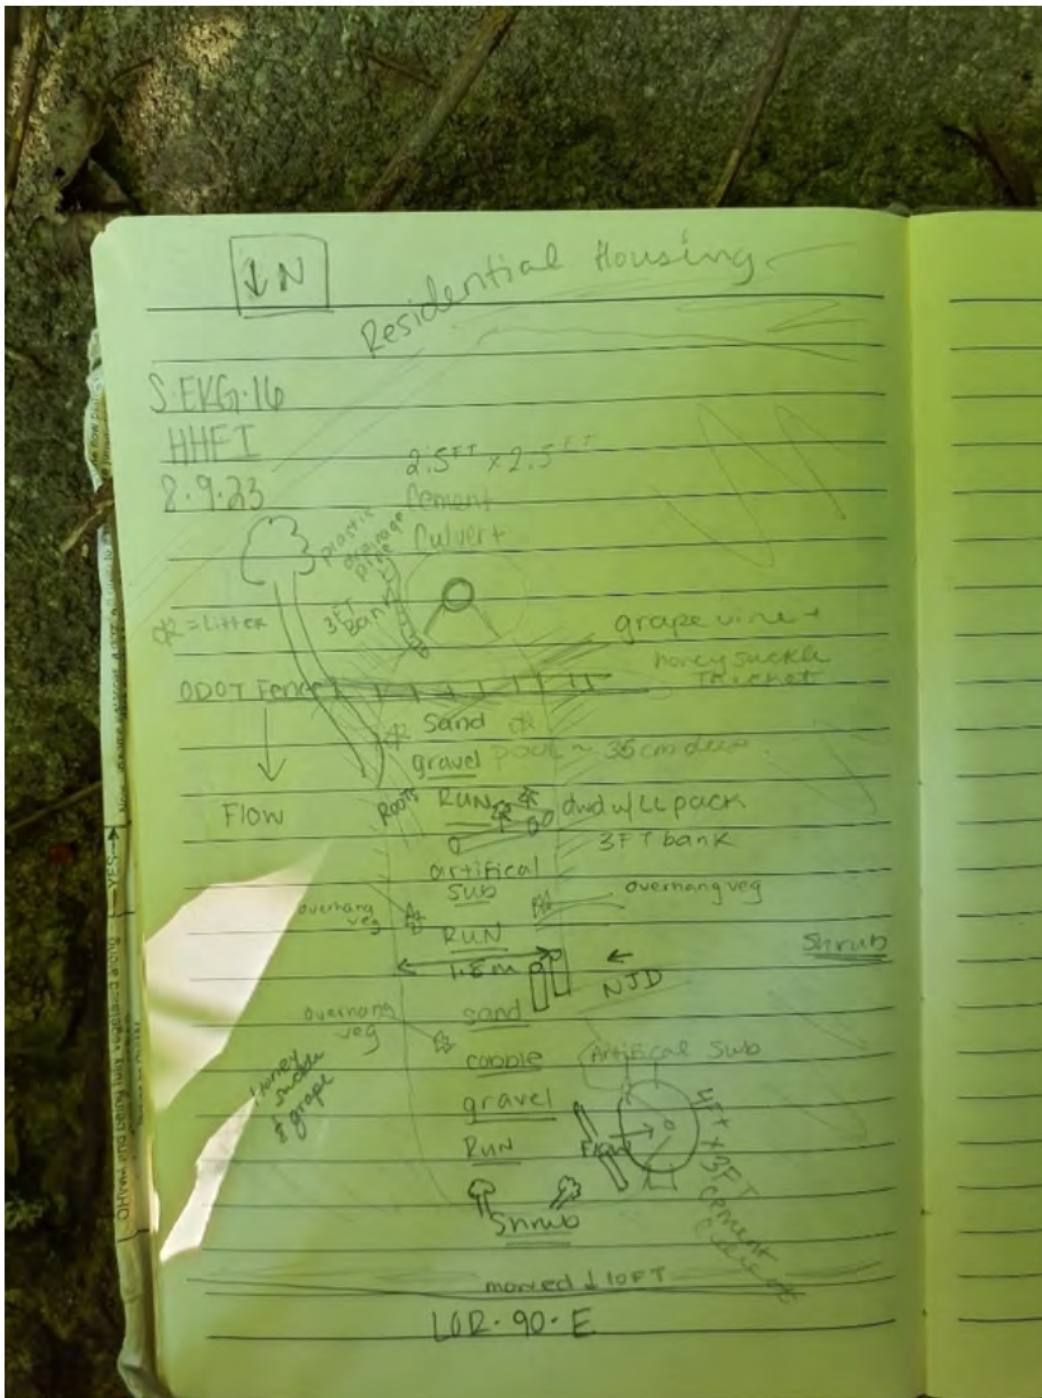 ↓N
Residential Housing
S.EKG.16
HHEI
8.9.23
2.5FT x 2.5FT
Cement
Culvert
plastic
drainage
pipe
3FT
Bank
= Litter
grape vine +
honeysuckle
Thicket
ODOT Fence
Sand
gravel
pool ~ 35cm deep
Flow
ROOTS
RUN
dwd w/ LL pack
3FT bank
artifical
sub
overhang
veg
overhang veg
RUN
1.8m
Shrub
←
NJD
overhang
veg
sand
cobble
Artifical Sub
Honey
suckle
& grape
gravel
RUN
Flow
4FT x 3FT
cement
culvert
Shrub
↓ 10FT
LOR.90.E
YES